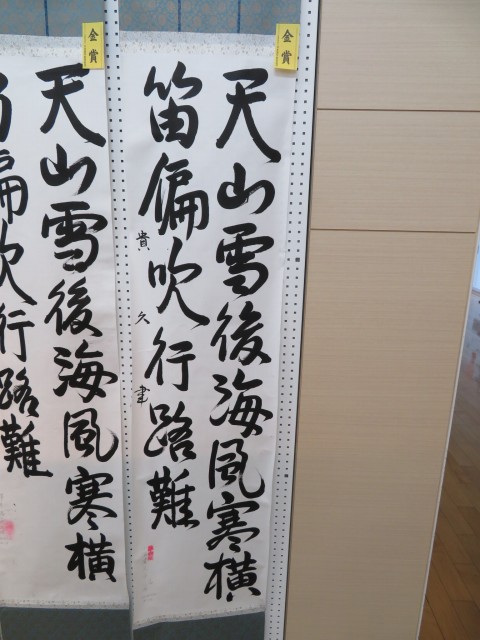 金賞
天山雪後海風寒橫
笛偏吹行路難
貴久書
金賞
天山雪後海風寒橫
笛偏吹行路難